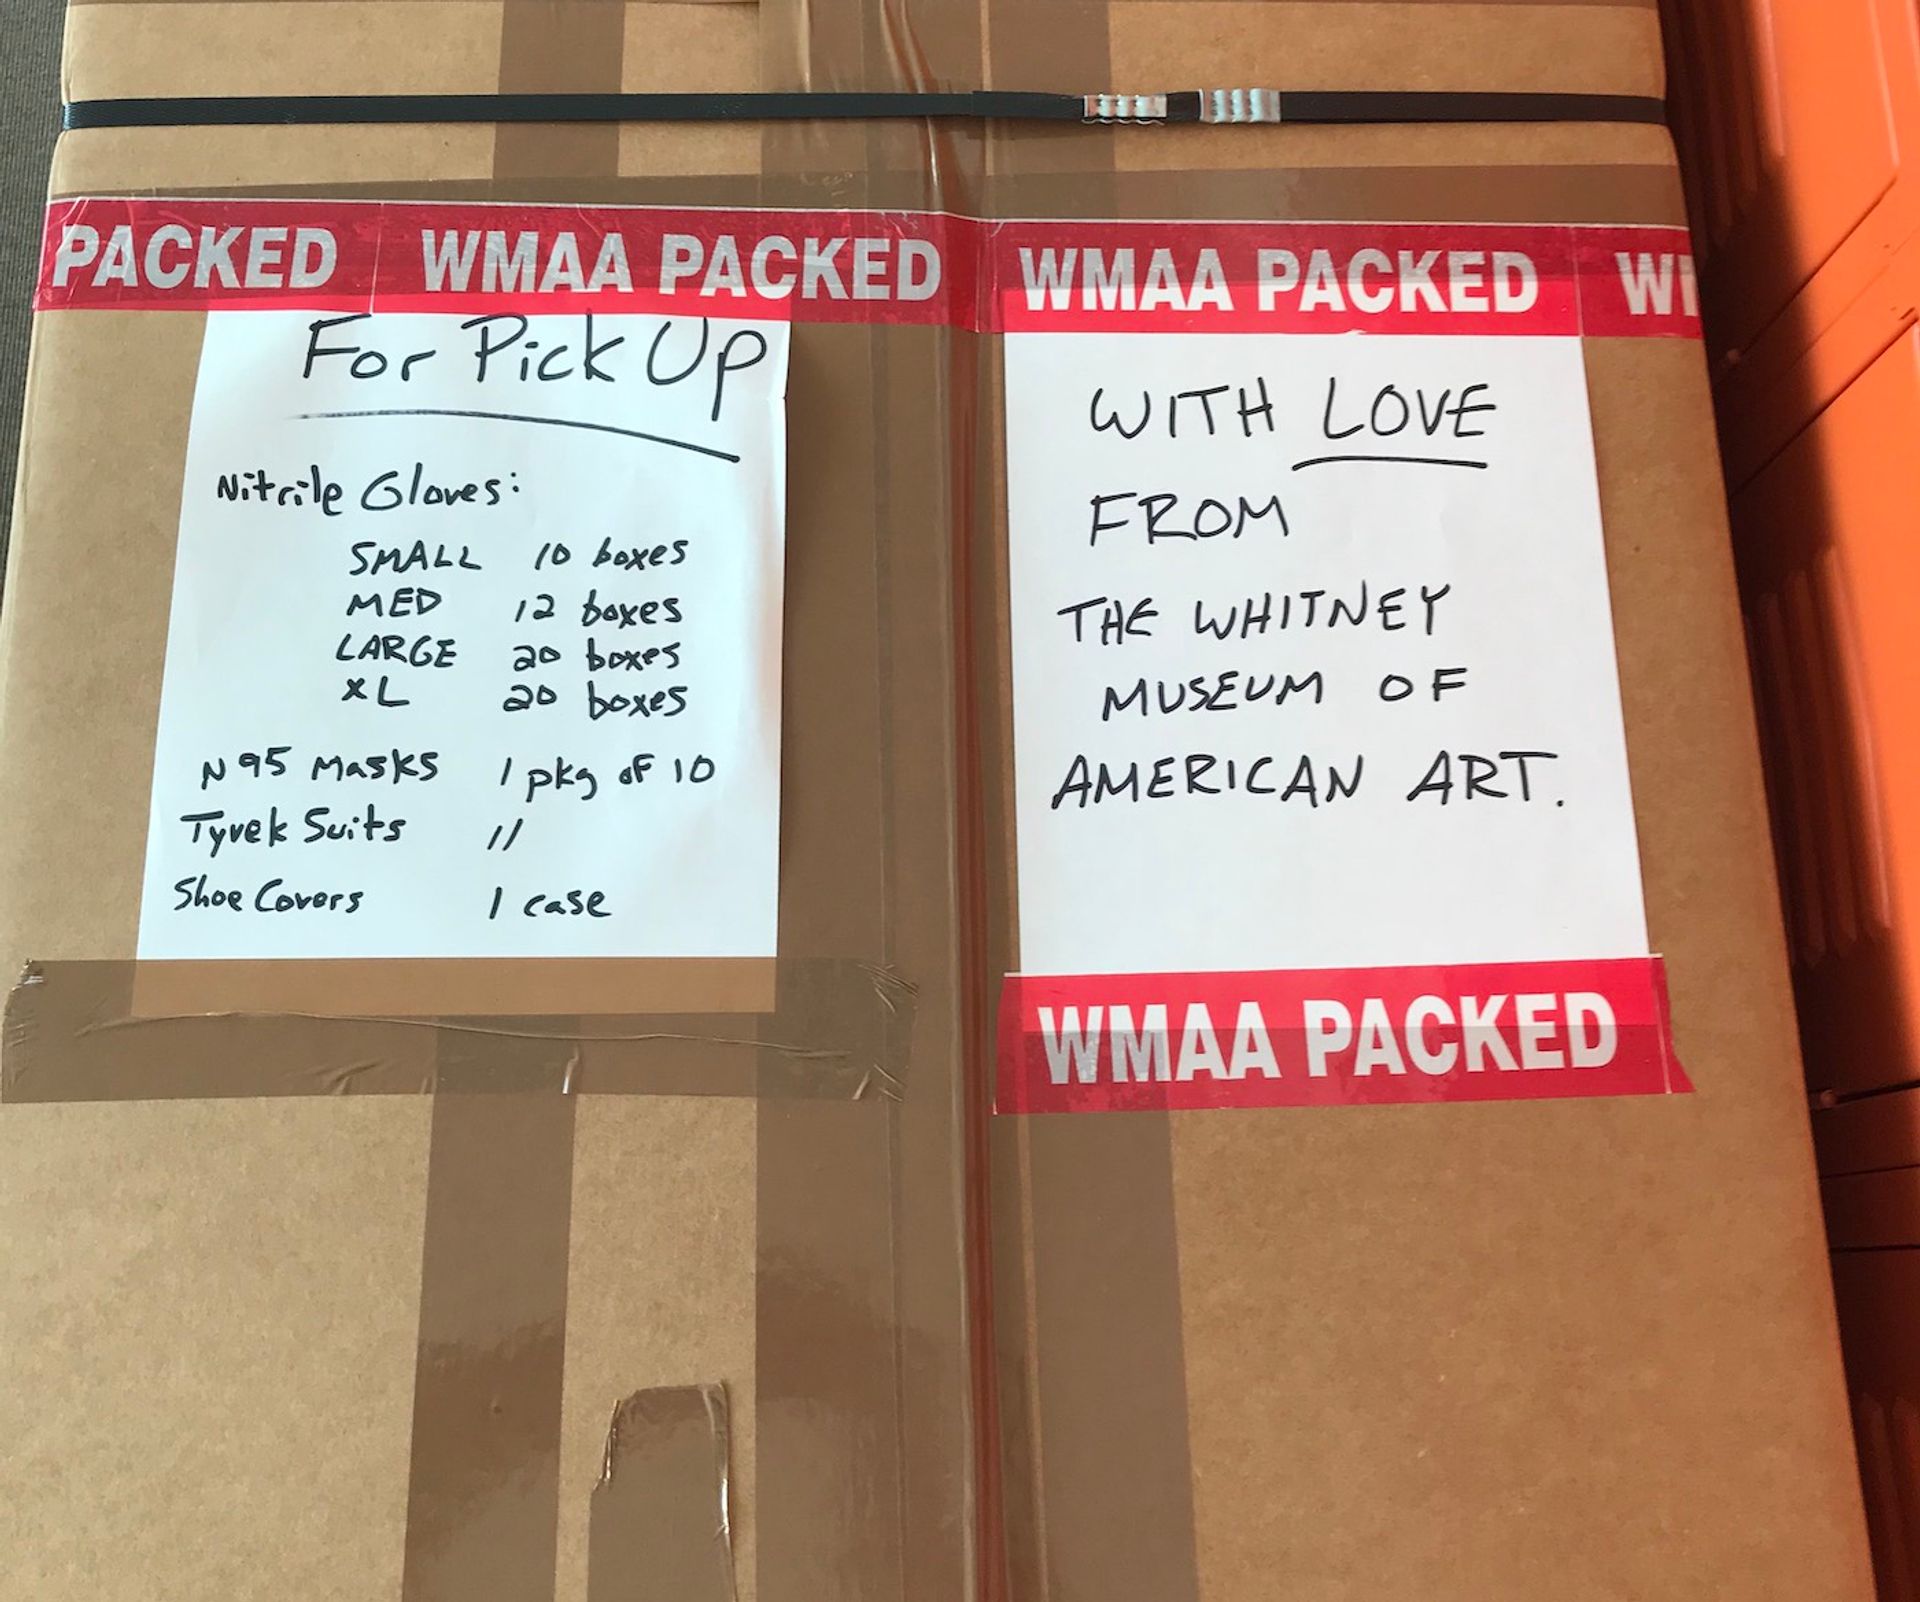 PACKED WMAA PACKED WMAA PACKED
For Pick Up
Nitrile Gloves:
SMALL 10 boxes
MED 12 boxes
LARGE 20 boxes
XL 20 boxes
N95 Masks 1 pkg of 10
Tyvek Suits 11
Shoe Covers 1 case
WITH LOVE
FROM
THE WHITNEY
MUSEUM OF
AMERICAN ART.
WMAA PACKED